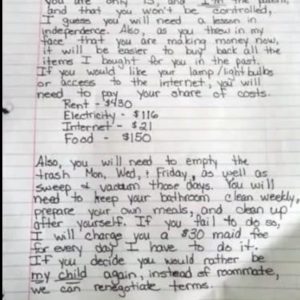 you are only 13, and I'm the parent,
and that you won't be controlled,
I guess you will need a lesson in
independence. Also, as you threw in my
face that you are making money now,
it will be easier to buy back all the
items I bought for you in the past.
If you would like your lamp/light bulbs
or access to the internet, you will
need to pay your share of costs.
Rent - $430
Electricity - $116
Internet - $21
Food - $150
Also, you will need to empty the
trash Mon, Wed, + Friday, as well as
sweep + vacuum those days. You will
need to keep your bathroom clean weekly,
prepare your own meals, and clean up
after yourself. If you fail to do so,
I will charge you a $30 maid fee
for every day I have to do it.
If you decide you would rather be
my child again, instead of roommate,
we can renegotiate terms.